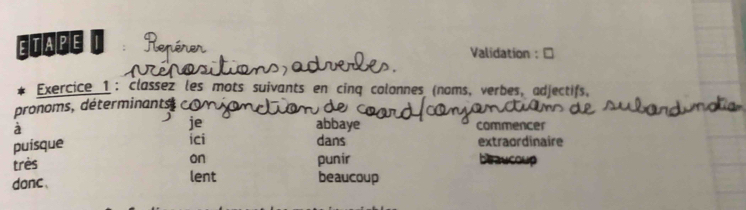 ETAPE 1 : Repérer Validation : □
prépositions, adverbes.
* Exercice 1 : classez les mots suivants en cinq colonnes (noms, verbes, adjectifs,
pronoms, déterminants, conjonction de coord/conjonctions de subordination
à je abbaye commencer
puisque ici dans extraordinaire
très on punir beaucoup
donc. lent beaucoup